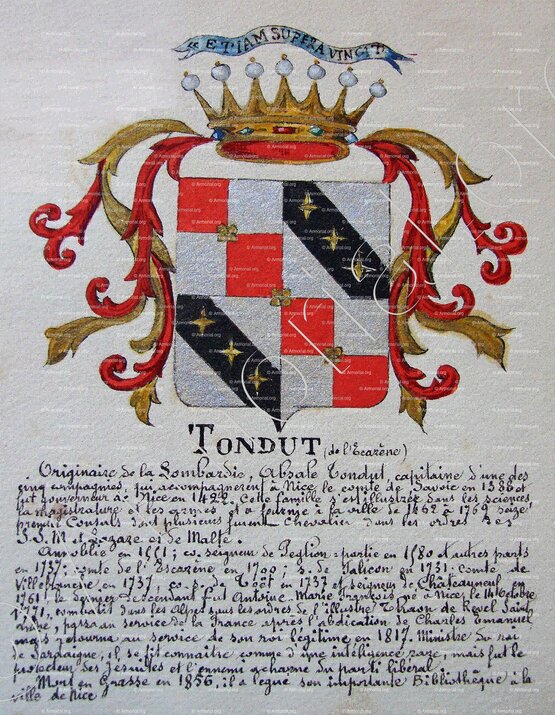 « ETIAM SUPERA VINCIT
TONDUT (de l'Escarène)
Originaire de la Lombardie, Absale Tondut, capitaine d'une des
cinq compagnies, qui accompagnèrent à Nice le comte de Savoie en 1388 et
fut gouverneur de Nice en 1422. Cette famille s'est illustrée dans les sciences,
la magistrature et les armes et a fournie à la ville de 1462 à 1769 seize
premier Consuls dont plusieurs furent Chevalier dans les ordres des
S.S. M et Lazare et de Malte.
Annoblie en 1551; co. seigneur de Peglion : partie en 1580 et autres parts
en 1737; comte de l'Escazène en 1700; s. de Falicon en 1731; comte de
Villefranche en 1737, co. s. de Toët en 1737 et seigneur de Châteauneuf en
1761, le dernier descendant fut Antoine-Marie François né à Nice, le 14 octobre
1771, combatit dans les Alpes sous les ordres de l'illustre Thaon de Revel Saint
André, passa au service de la France après l'abdication de Charles Emanuel
mais retourna au service de son roi légitime en 1817. Ministre du roi
de Sardaigne, il se fit connaître comme d'une intéligence rare, mais fut le
protecteur des Jésuites et l'ennemi acharné du parti libéral.
Mort en Grasse en 1856, il a légué son importante Bibliothèque à la
ville de Nice